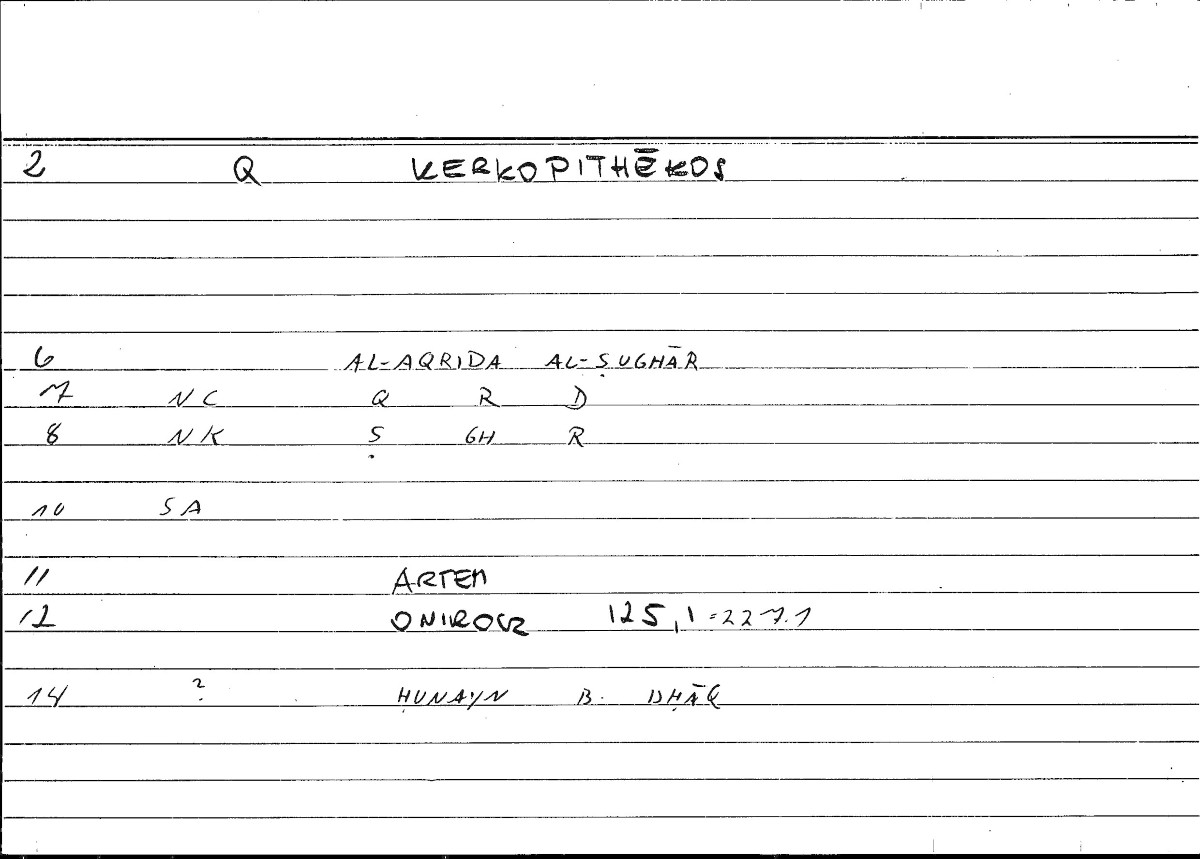 2 Q KERKOPITHĒKOS
6 AL-AQRIDA AL-ṢUGHĀR
7 NC Q R D
8 NK Ṣ GH R
10 SA
11 ARTEM
12 ONIROCR 125,1=227.1
14 ? ḤUNAYN B. ISḤĀQ